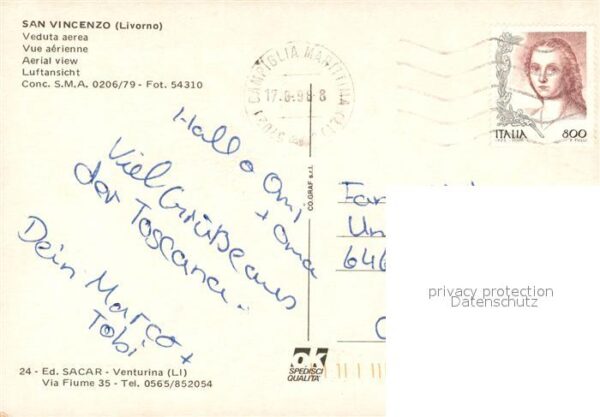 SAN VINCENZO (Livorno)
Veduta aerea
Vue aérienne
Aerial view
Luftansicht
Conc. S.M.A. 0206/79 - Fot. 54310
CAMPIGLIA MARITTIMA (LI)
17.6.98-8
ITALIA 800
Hallo Omi
+ Oma
Viel Grüße aus
der Toscana.
Dein Marco +
Tobi
CO.GRAF s.r.l.
Fam
Un
646
privacy protection
Datenschutz
ok
SPEDISCI
QUALITÀ
24 - Ed. SACAR - Venturina (LI)
Via Fiume 35 - Tel. 0565/852054